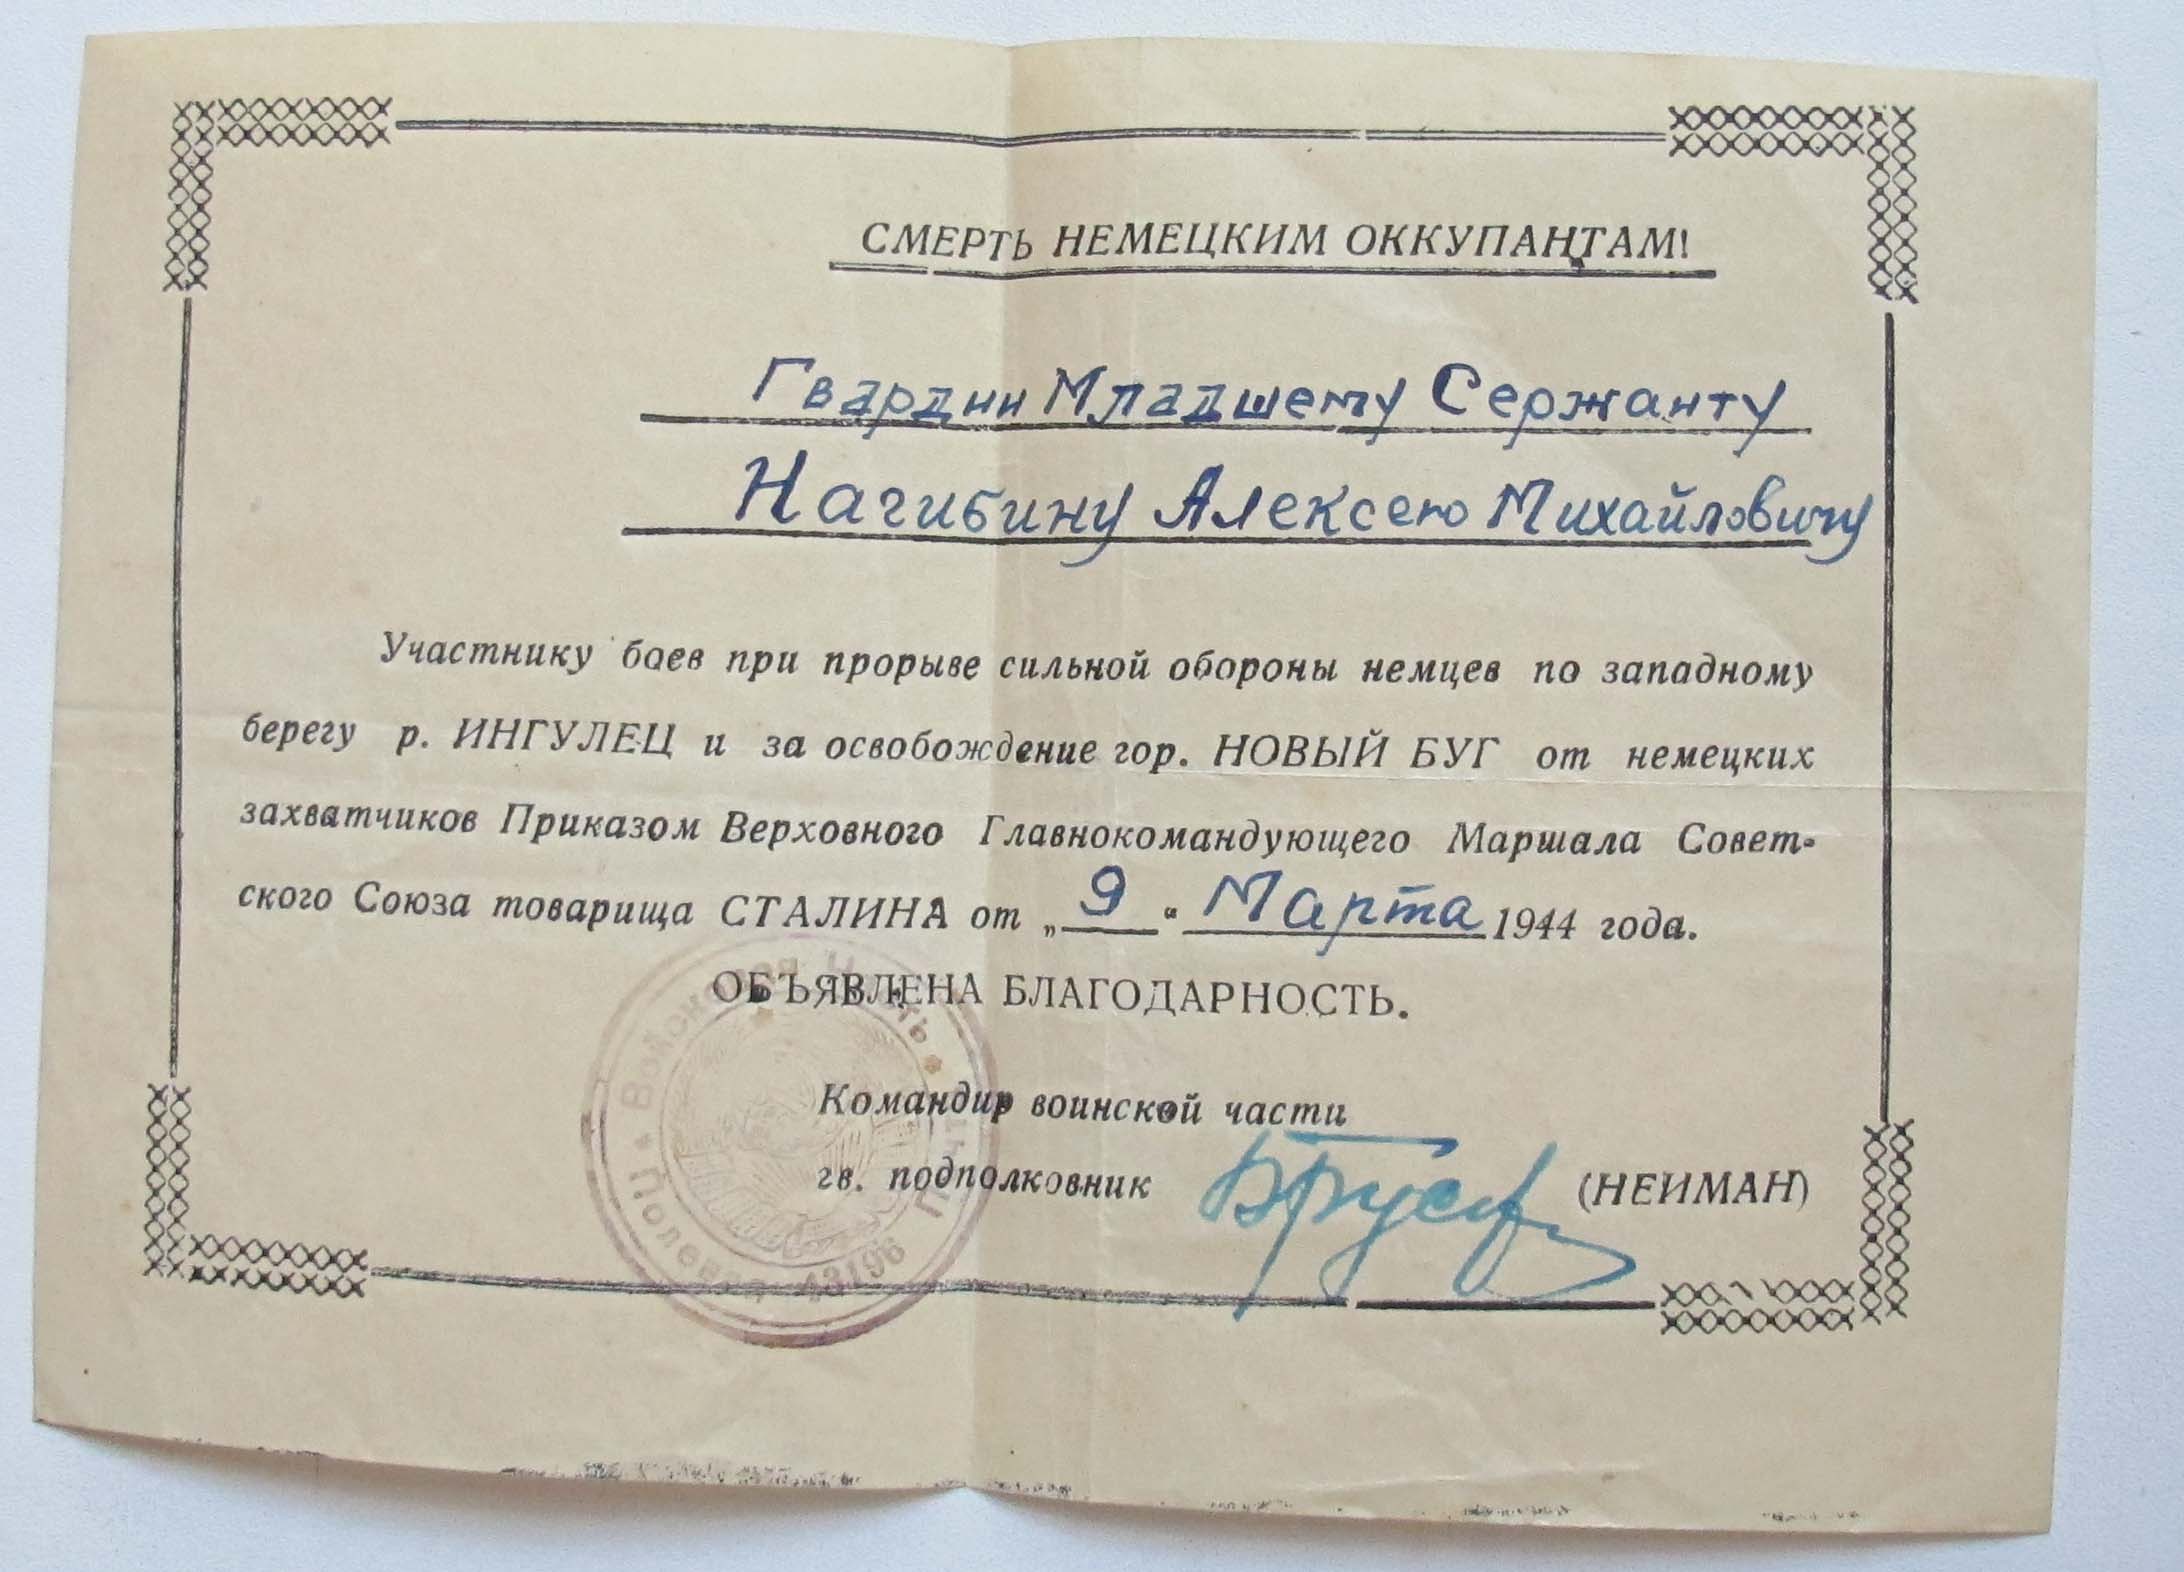 СМЕРТЬ НЕМЕЦКИМ ОККУПАНТАМ!
Гвардии Младшему Сержанту
Нагибину Алексею Михайловичу
Участнику боев при прорыве сильной обороны немцев по западному
берегу р. ИНГУЛЕЦ и за освобождение гор. НОВЫЙ БУГ от немецких
захватчиков Приказом Верховного Главнокомандующего Маршала Совет-
ского Союза товарища СТАЛИНА от „ 9 “ Марта 1944 года.
ОБЪЯВЛЕНА БЛАГОДАРНОСТЬ.
Командир воинской части
гв. подполковник (НЕИМАН)
Войсковая Часть
Полевая Почта